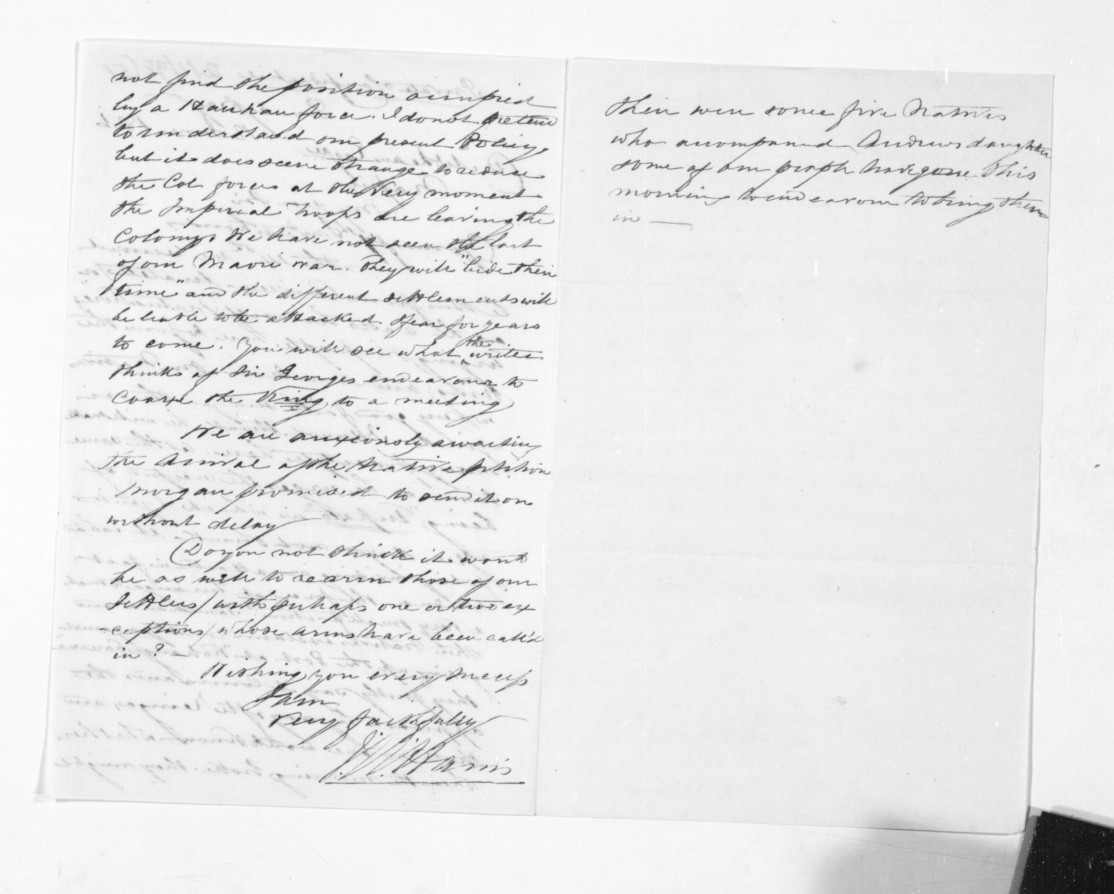 not find the position occupied
by a Hauhau force. I do not pretend
to understand our present Policy,
but it does seem strange to reduce
the Col forces at the very moment
the Imperial Troops are leaving the
Colony. We have not seen the last
of our Maori War. They will "bide their
time" and the different settlements will
be liable to be attacked I fear for years
to come. You will see what the writer
thinks of Sir Georges endeavours to
coax the King to a meeting
We are anxiously awaiting
the arrival of the Native petition
Morgan promised to send it on
without delay
Do you not think it would
be as well to rearm those of our
Settlers (with perhaps one or two ex
ceptions) whose arms have been call'd
in? —
Wishing you every success
I am
Very faithfully
Harris
their were some five Natives
who accompanied Andrews daughter
some of our people have gone this
morning to endeavour to bring them
in —